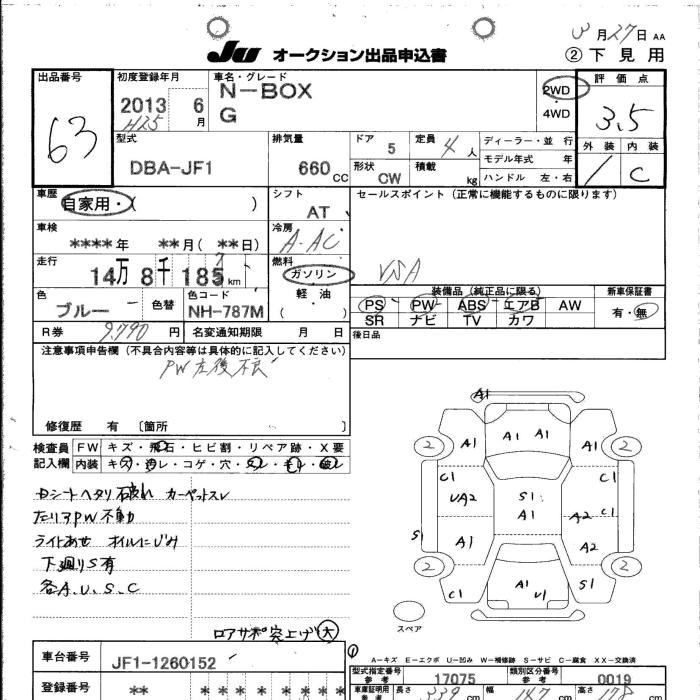 3月27日 AA
JU オークション出品申込書 ②下見用
出品番号 初度登録年月 車名・グレード 評価点
63 2013 6月 N-BOX 2WD 3.5
H25 G 4WD
外装 内装
型式 排気量 ドア 5 定員 4人 ディーラー・並行 / C
DBA-JF1 660cc 形状 CW 積載 kg モデル年式 年
ハンドル 左・右
車歴 シフト セールスポイント(正常に機能するものに限ります)
自家用・( ) AT
車検 冷房
****年 **月(**日) A-AC
走行 燃料
14万8千185km ガソリン VSA
軽油
( )
色 色替 色コード 装備品(純正品に限る) 新車保証書
ブルー NH-787M PS PW ABS エアB AW 有・無
SR ナビ TV カワ
R券 9,790円 名変通知期限 月 日 後日品
注意事項申告欄(不具合内容等は具体的に記入してください)
PW左後不良
修復歴 有 〔箇所 〕
検査員 FW キズ・飛石・ヒビ割・リペア跡・X要
記入欄 内装 キズ・汚レ・コゲ・穴・スレ・キレ・破レ
Dシートヘタリ破れ カーペットスレ
左リアPW不動
ライトあせ オイルにじみ
下廻りS有
各A.U.S.C
ロアサポ突上げ大
A1
2 A1 A1 A1 A1 2
C1 C1
UA2 S1 C1
A1 A2
S1 A1 A2
2 A1 2
C1 U1 S1
スペア
A-キズ E-エクボ U-凹み W-補修跡 S-サビ C-腐食 XX-交換済
車台番号 JF1-1260152
型式指定番号 参考 17075 類別区分番号 参考 0019
登録番号 ** * * * * * * *
車庫証明用 参考 長さ 339cm 幅 147cm 高さ 178cm